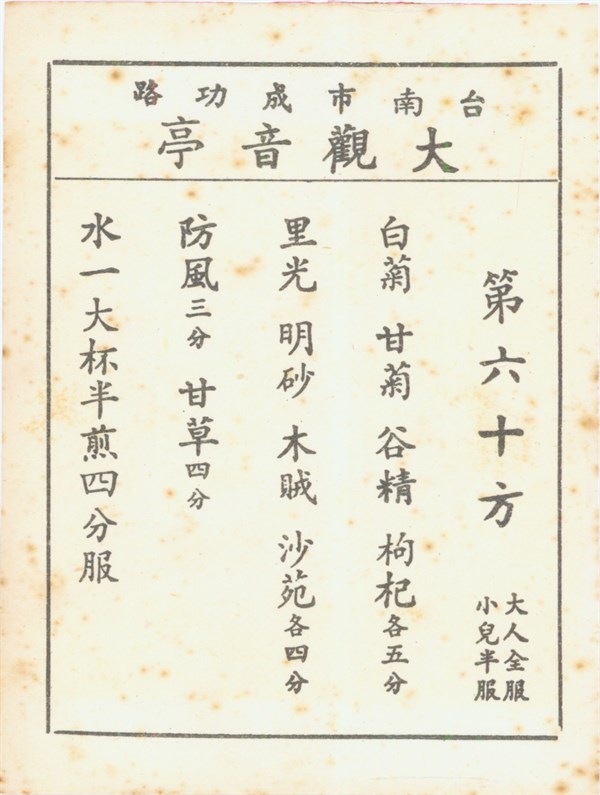 台南市成功路
大觀音亭
第六十方
大人全服
小兒半服
白菊 甘菊 谷精 枸杞各五分
里光 明砂 木賊 沙苑各四分
防風三分 甘草四分
水一大杯半煎四分服